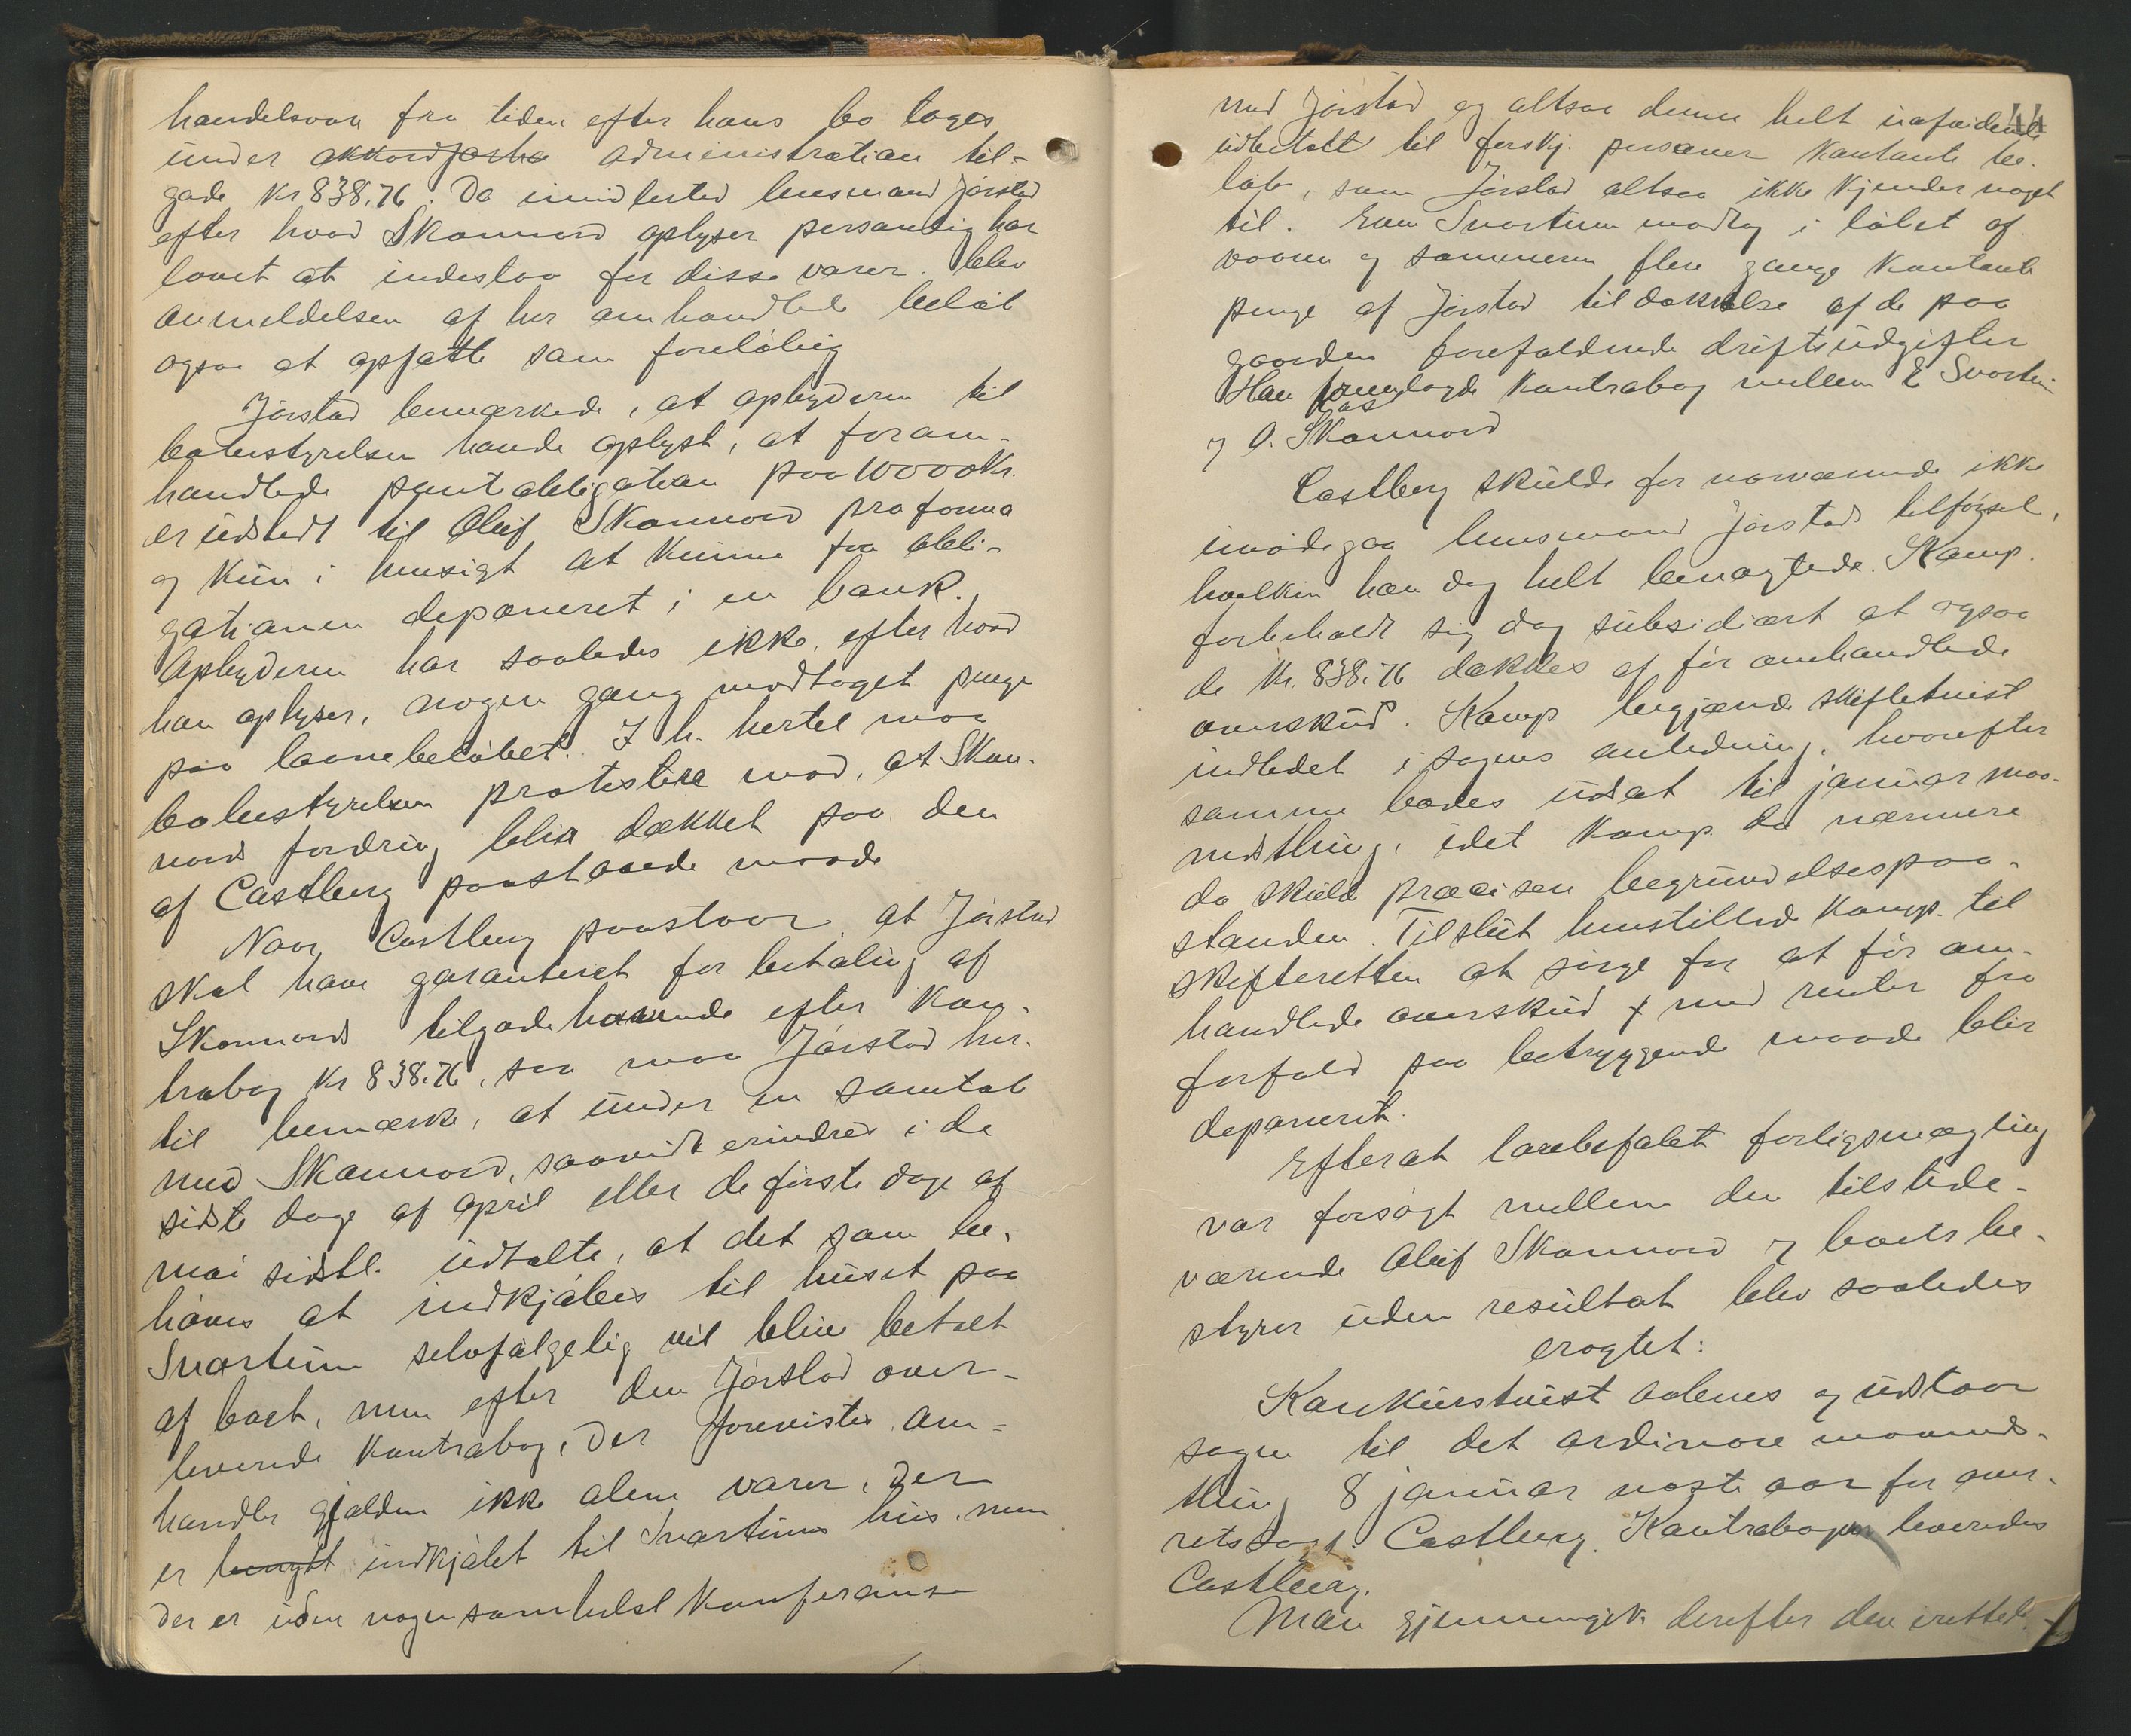 handelsvare fra tiden efter hans bo toges
under akkordforha administration til-
gode kr 838.76. Da imidlertid lensmand Jörstad
efter hvad Skonnord oplyser personlig har
lovet at indestaa for disse varer. blev
anmeldelsen af her omhandlede belöb
ogsaa at opfatte som forelöbig
Jörstad bemærkede, at opbyderen til
bobestyrelsen havde oplyst, at foram-
handlede pantobligation paa 10000 Kr.
er udstedt til Oluf Skonnord pro forma
og kun i hensigt at kunne faa obli-
gationen deponeret i en bank.
Opbyderen har saaledes ikke, efter hvad
han oplyser, nogen gang modtaget penge
paa laanebelöbet. I h. hertil maa
bobestyrelsen protistere mod, at Skon-
nords fordring blir dækket paa den
af Castberg paastaaede maade
Naar Castberg paastaar at Jörstad
skal have garanteret for betaling af
Skonnords tilgodehavende efter Kon-
trabog kr 838.76, saa maa Jörstad her-
til bemærke, at under en samtale
med Skonnord, saavidt erindres i de
sidste dage af april eller de förste dage af
mai sidstl. udtalte, at det som be-
höves at indkjöbes til huset paa
Svartum selvfölgelig vil blive betalt
af boet, men efter den Jörstad over-
leverede Kontrabog, der forevistes om-
handler gjælden ikke alene varer, der
er benyt indkjöbt til Svartums hus. men
der er uden nogensomhelst Konferanse
44
med Jörstad og altsaa denne helt uafvidende
udbetalt til forskj. personer kontante be-
löb, som Jörstad altsaa ikke kjender noget
til. Even Svartum modtog i löbet af
vaaren og sommeren flere gange kontante
penge af Jörstad til dækkelse af de paa
gaarden forefaldende driftsudgifter
Han fremlagde Kontrabog mellem E Svartum
og O. Skonnord
Castberg skulde for nærværende ikke
imödegaa lensmand Jörstads tilförsel,
hvilken han dog helt benægtede. Komp.
forbeholdt sig dog subsidiært at ogsaa
de kr. 838.76 dækkes af för omhandlede
overskud. Komp begjærede skiftetvist
indledet i sagens anledning, hvorefter
samme bades udsat til januar maa-
nedsthing, idet Komp. da nærmere
da skuld præcisere begrundelsespaa-
standen. Tilslut henstillede Komp. til
skifteretten at sörge for at för om-
handlede overskud x med renter fra
forfald paa betryggende maade blir
deponerit.
Efterat lovbefalet forligsmægling
var forsögt mellem den tilstede-
værende Oluf Skonnord og boets be-
styrer uden resultat blev saaledes
eragtet:
Konkurstvist aabnes og udstaar
sagen til det ordinære maaneds-
thing 8 januar næste aar for over-
retssagf. Castberg. Kontrabogen leveredes
Castberg.
Man gjennemgik derefter den irettel.